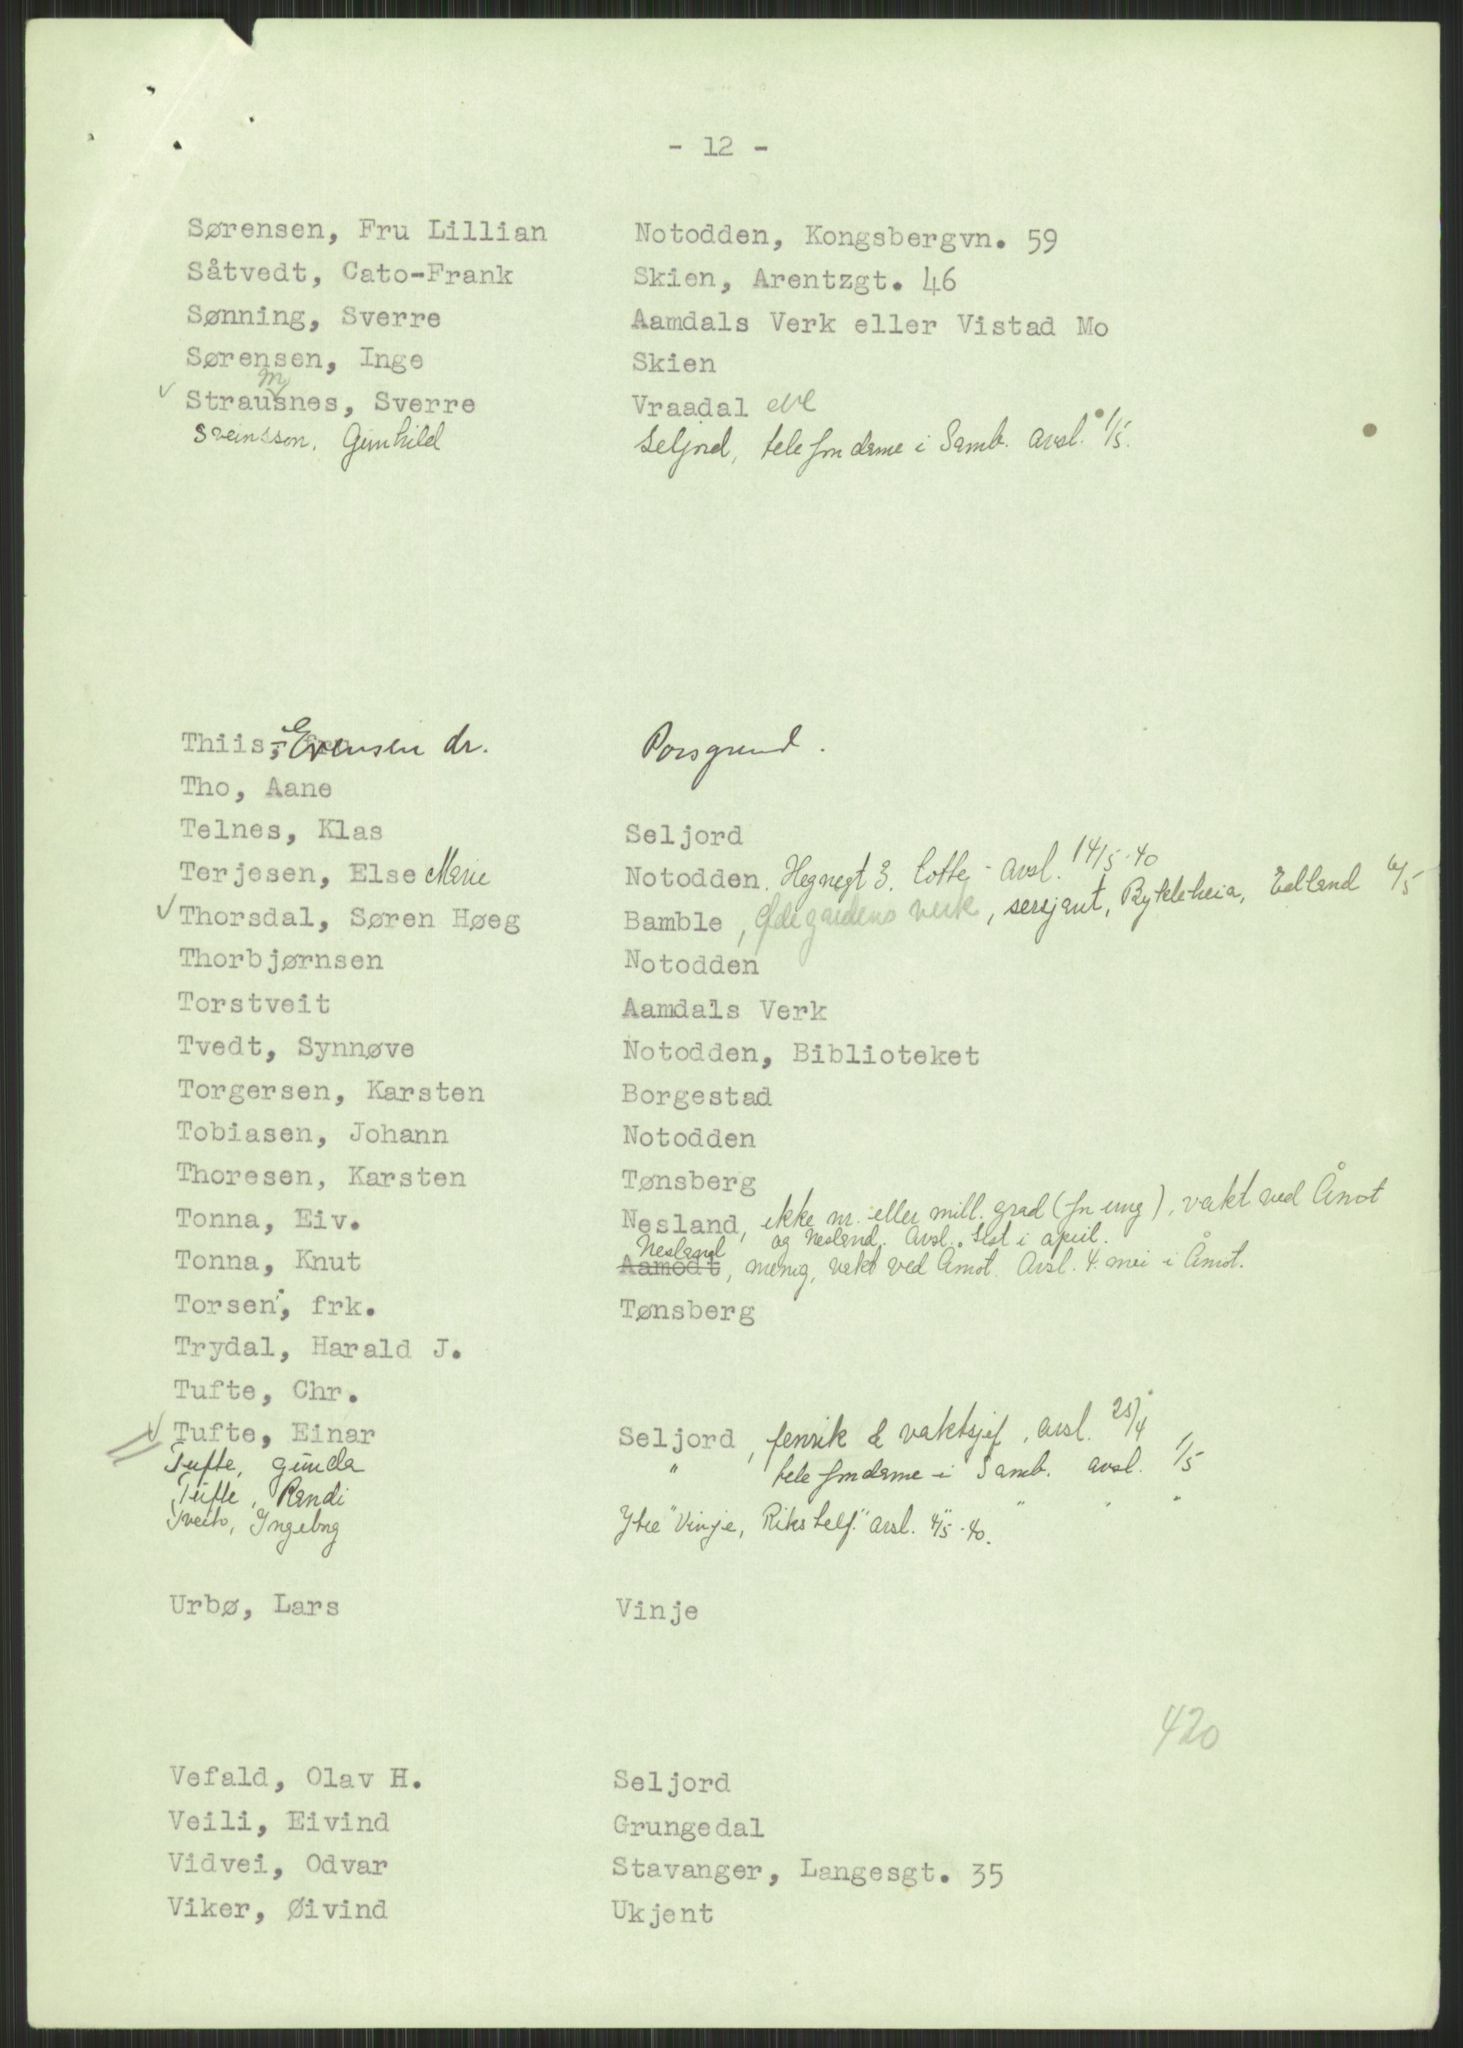 - 12 -
Sørensen, Fru Lillian Notodden, Kongsbergvn. 59
Såtvedt, Cato-Frank Skien, Arentzgt. 46
Sønning, Sverre Aamdals Verk eller Vistad Mo
Sørensen, Inge Skien
m
✓ Strausnes, Sverre Vraadal
Sveinsson, Gunhild Seljord, telefondame i Samb. avsl. 1/5.
Thiis-Evensen dr. Porsgrund.
Tho, Aane
Telnes, Klas Seljord
Terjesen, Else Marie Notodden, Hegnegt 3. Lotte - avsl. 14/5-40
✓ Thorsdal, Søren Høeg Bamble, Ødegaardens verk, sersjant, Bykleheia, Edland 6/5
Thorbjørnsen Notodden
Torstveit Aamdals Verk
Tvedt, Synnøve Notodden, Biblioteket
Torgersen, Karsten Borgestad
Tobiasen, Johann Notodden
Thoresen, Karsten Tønsberg
Tonna, Eiv. Nesland, ikke nr. eller mill. grad (for ung), vakt ved Åmot
og Nesland. Avsl. sist i april.
Nesland
Tonna, Knut Aamodt, menig, vakt ved Åmot. Avsl. 4. mai i Åmot.
Torsen, frk. Tønsberg
Trydal, Harald J.
Tufte, Chr.
✓ Tufte, Einar Seljord, fenrik & vaktsjef, avsl. 25/4
Tufte, Gunda " telefondame i Samb. avsl. 1/5
Tufte, Randi " " " "
Tveito, Ingebrg Ytre Vinje, Rikstelf. avsl. 4/5-40.
Urbø, Lars Vinje
420
Vefald, Olav H. Seljord
Veili, Eivind Grungedal
Vidvei, Odvar Stavanger, Langesgt. 35
Viker, Øivind Ukjent